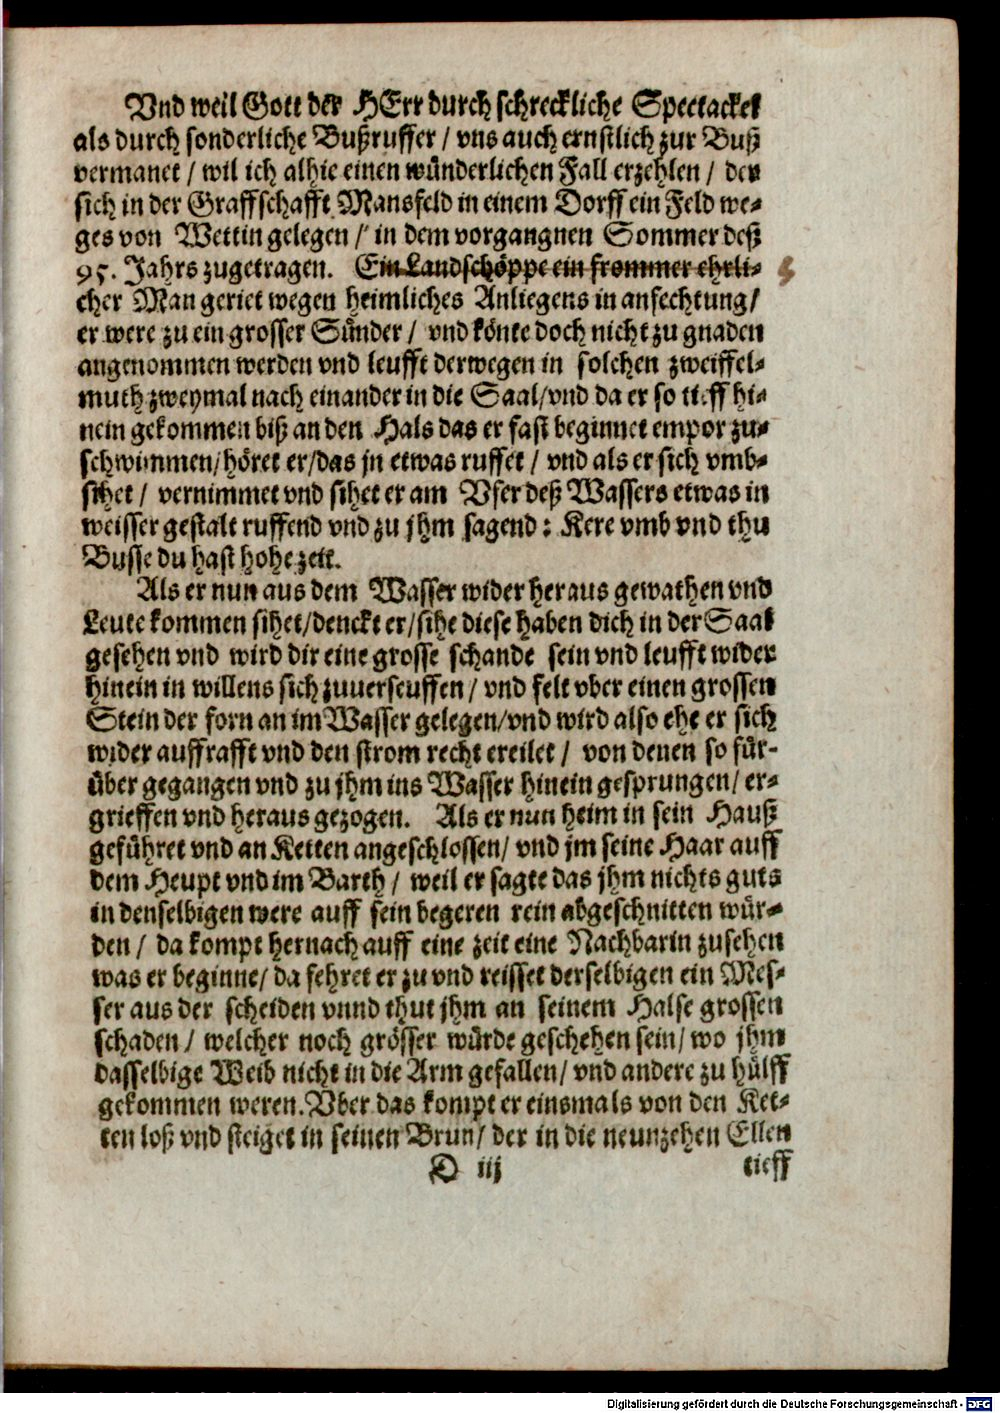 Vnd weil Gott der HErr durch schreckliche Spectackel
als durch sonderliche Bußruffer / vns auch ernstlich zur Buß
vermanet / wil ich alhie einen wünderlichen Fall erzehlen / der
sich in der Graffschafft Mansfeld in einem Dorff ein Feld we-
ges von Wettin gelegen / in dem vorgangnen Sommer deß
95. Jahrs zugetragen. Ein Landschöppe ein frommer ehrli-
cher Man geriet wegen heimliches Anliegens in anfechtung /
er were zu ein grosser Sünder / vnd könte doch nicht zu gnaden
angenommen werden vnd leufft derwegen in solchen zweiffel-
muth zweymal nach einander in die Saal / vnd da er so tieff hi-
nein gekommen biß an den Hals das er fast beginnet empor zu-
schwimmen / höret er / das jn etwas ruffet / vnd als er sich vmb-
sihet / vernimmet vnd sihet er am Vfer deß Wassers etwas in
weisser gestalt ruffend vnd zu jhm sagend : Kere vmb vnd thu
Busse du hast hohe zeit.
Als er nun aus dem Wasser wider heraus gewathen vnd
Leute kommen sihet / denckt er / sihe diese haben dich in der Saal
gesehen vnd wird dir eine grosse schande sein vnd leufft wider
hinein in willens sich zuuerseuffen / vnd felt vber einen grossen
Stein der forn an im Wasser gelegen / vnd wird also ehe er sich
wider auffrafft vnd den strom recht ereilet / von denen so für-
über gegangen vnd zu jhm ins Wasser hinein gesprungen / er-
grieffen vnd heraus gezogen. Als er nun heim in sein Hauß
geführet vnd an Ketten angeschlossen / vnd jm seine Haar auff
dem Heupt vnd im Barth / weil er sagte das jhm nichts guts
in denselbigen were auff sein begeren rein abgeschnitten wür-
den / da kompt hernach auff eine zeit eine Nachbarin zusehen
was er beginne / da fehret er zu vnd reisset derselbigen ein Mes-
ser aus der scheiden vnnd thut jhm an seinem Halse grossen
schaden / welcher noch grösser würde geschehen sein / wo jhm
dasselbige Weib nicht in die Arm gefallen / vnd andere zu hülff
gekommen weren. Vber das kompt er einsmals von den Ket-
ten loß vnd steiget in seinen Brun / der in die neunzehen Ellen
D iij tieff
Digitalisierung gefördert durch die Deutsche Forschungsgemeinschaft - DFG